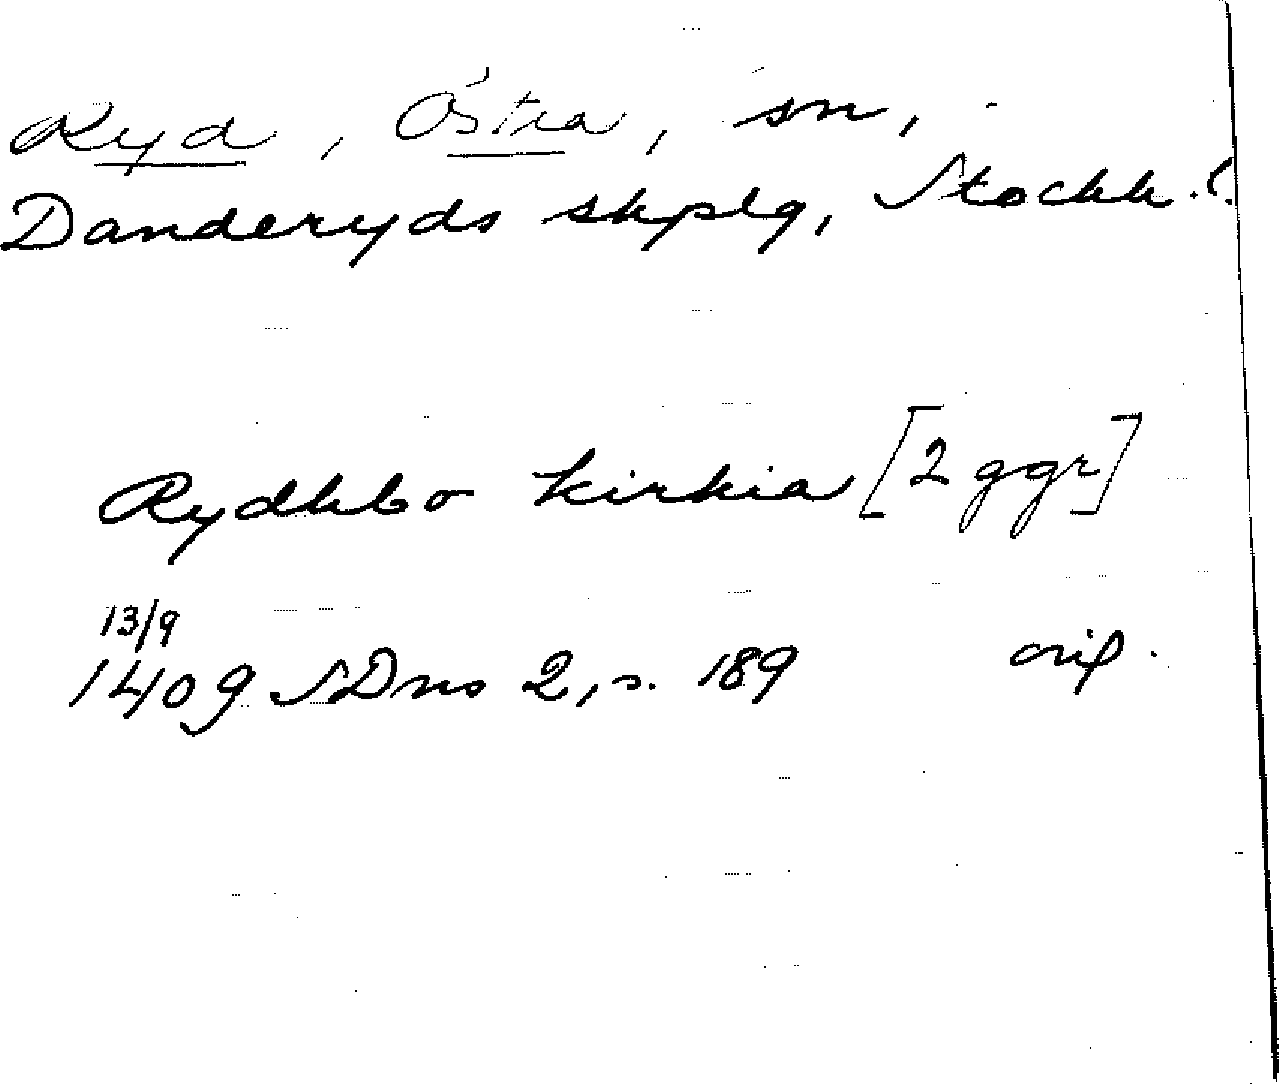 Ryd, Östra, sn,
Danderyds skplg, Stockh. l.
Rydhbo kirkia [2 ggr]
13/9
1409 SDns 2, s. 189 orig.